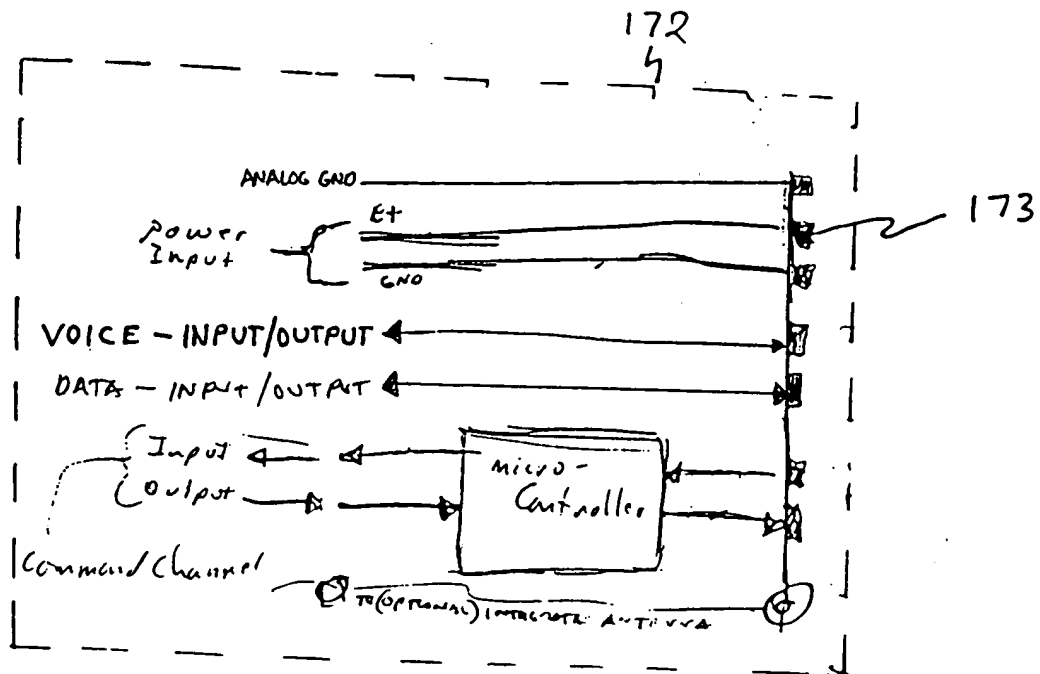 172
ANALOG GND
173
E+
Power
Input
GND
VOICE - INPUT/OUTPUT
DATA - INPUT/OUTPUT
Input
Output
micro-
Controller
Command Channel
TO (OPTIONAL) INTEGRATE ANTENNA